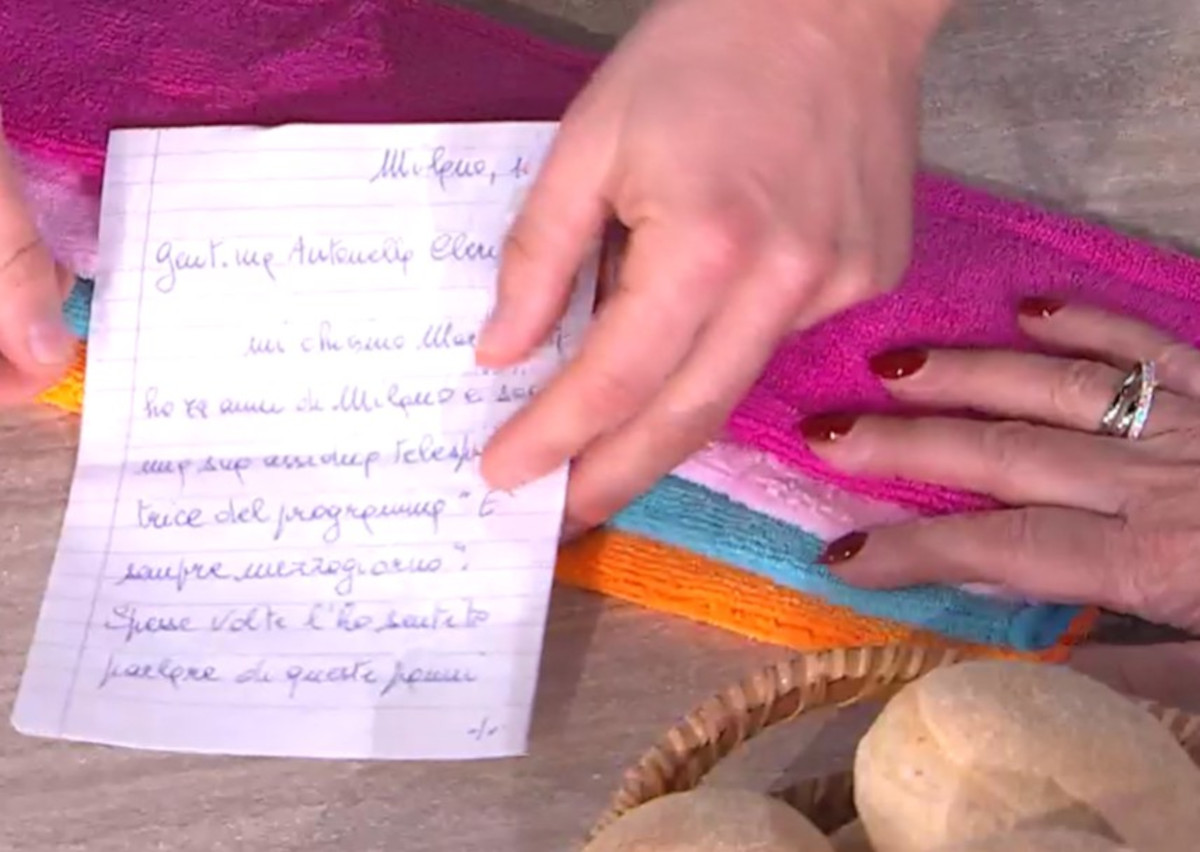 Milano, 1
Gent.ma Antonella Cleri
mi chiamo Mar
ho 72 anni di Milano e son
una sua assidua telespet
trice del programma "È
sempre mezzogiorno".
Spesse volte l'ho sentito
parlare di questi panni
-/-